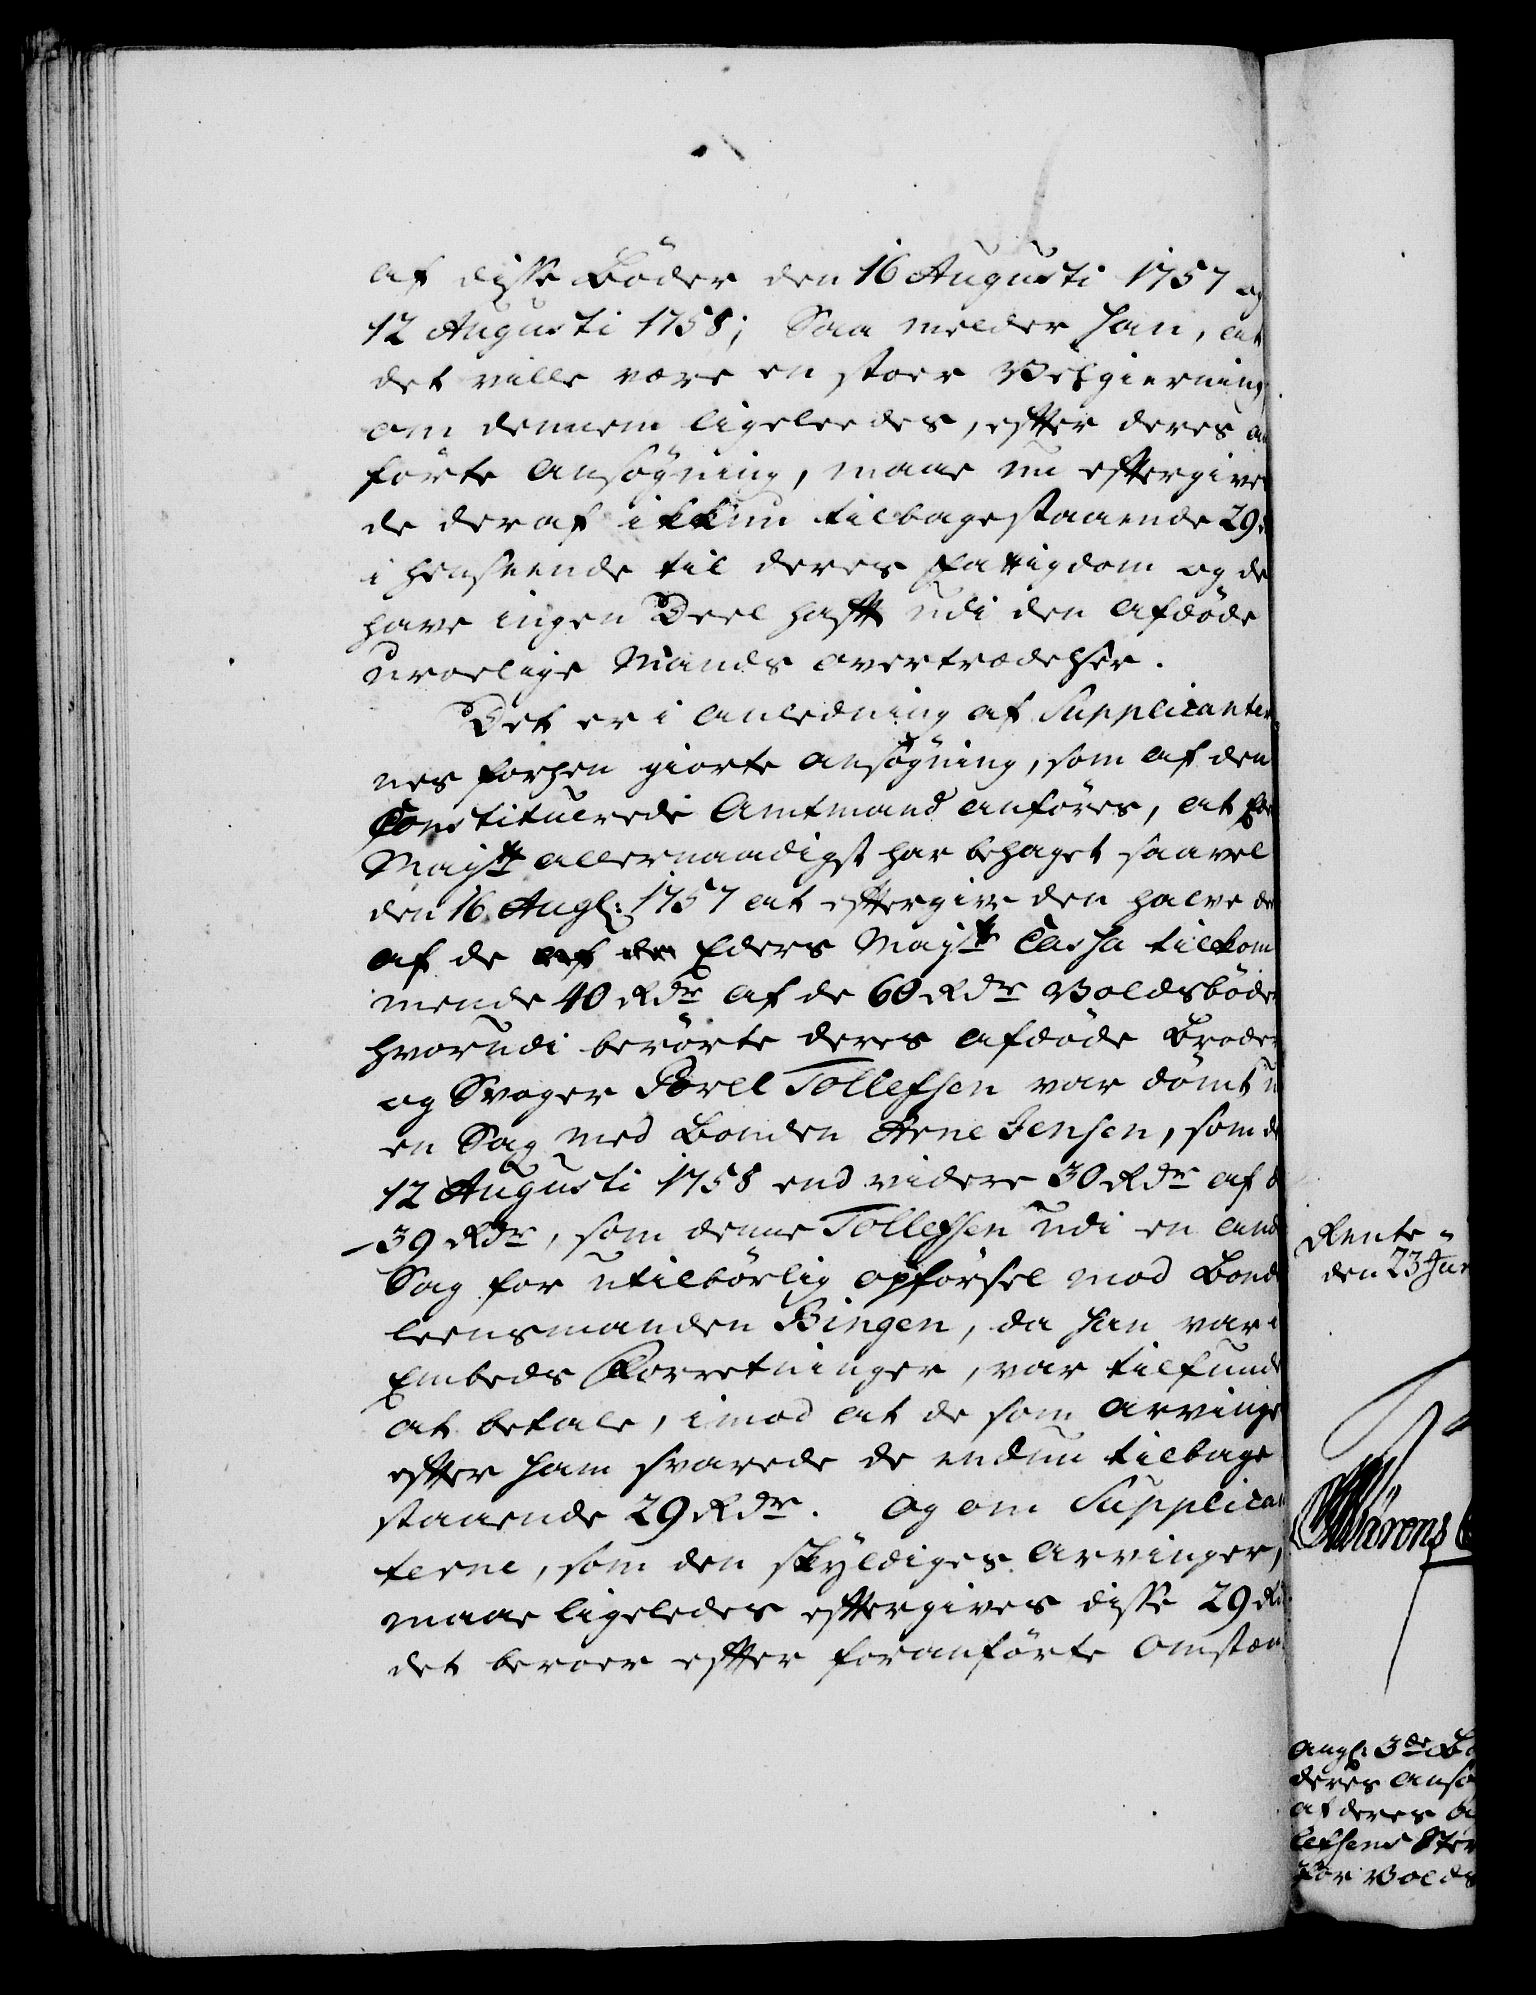 af disse Bøder den 16 Augusti 1757 og
12 Augusti 1758; Saa melder han, at
det ville være en stoer Velgierning,
om dennem ligeleedes, efter deres an
førte Ansøgning, maae nu eftergives
de deraf ikkun tilbagestaaende 29
i henseende til deres Fattigdom og de
have ingen Deel haft udi den Afdøde
uroelige Mands overtrædelser.
Det er i Anledning af Supplicanter
nes forhen giorte Ansøgning, som af den
Constituerede Amtmand anføres, at
Mayst allernaadigst har behaget saavel
den 16 Aug: 1757 at eftergive den halve de
af de Eders Mayst Cassa tilkom
mende 40 Rdr af de 60 Rdr Voldsbøder
hvorudi berørte deres afdøde Broder
og Svoger Porel Tollefsen var dømt u
en Sag med Bonden Arne Jensen, som d
12 Augusti 1758 end videre 30 Rdr af d
39 Rdr, som denne Tollefsen udi en and
Sag for utilbørlig opførsel mod Bonde
leensmanden Bingen, da han var i
Embeds Forretninger, var tilfunde
at betale, imod at de som Arvinge
efter ham svarede de endnu tilbage
staaende 29 Rdr. Og om Supplican
terne, som den skyldiges Arvinger,
maae ligeledes eftergives disse 29 Rd
det beroer efter foranførte Omstæn
Rente-
den 23 Jan
Ang: 3de B
deres Ansø
at deres
lefsens Ster
for Volds